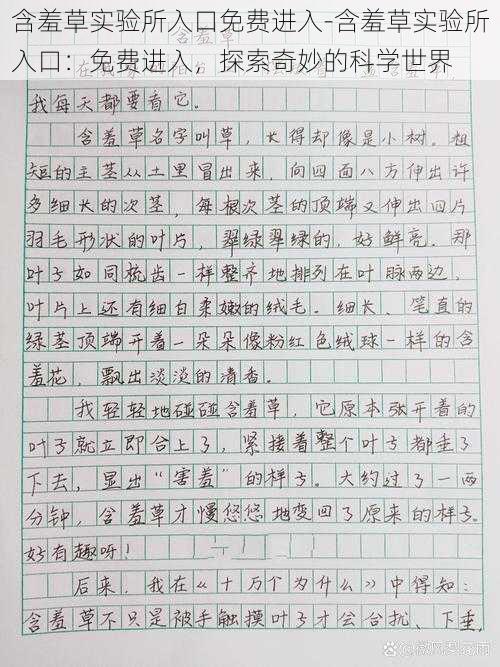 含羞草实验所入口免费进入-含羞草实验所
入口：免费进入，探索奇妙的科学世界
我每天都要看它。
含羞草名字叫草，长得却像是小树。粗
短的主茎从土里冒出来，向四面八方伸出许
多细长的次茎，每根次茎的顶端又伸出四片
羽毛形状的叶片，翠绿翠绿的，好鲜亮。那
叶子如同梳齿一样整齐地排列在叶脉两边，
叶片上还有细白柔嫩的绒毛。细长、笔直的
绿茎顶端开着一朵朵像粉红色绒球一样的含
羞花，飘出淡淡的清香。
我轻轻地碰碰含羞草，它原本张开着的
叶子就立即合上了，紧接着整个叶子都垂了
下去，显出“害羞”的样子。大约过了一两
分钟，含羞草才慢悠悠地变回了原来的样子。
好有趣呀！
后来，我在《十万个为什么》中得知：
含羞草不只是被手触摸叶子才会合拢、下垂，